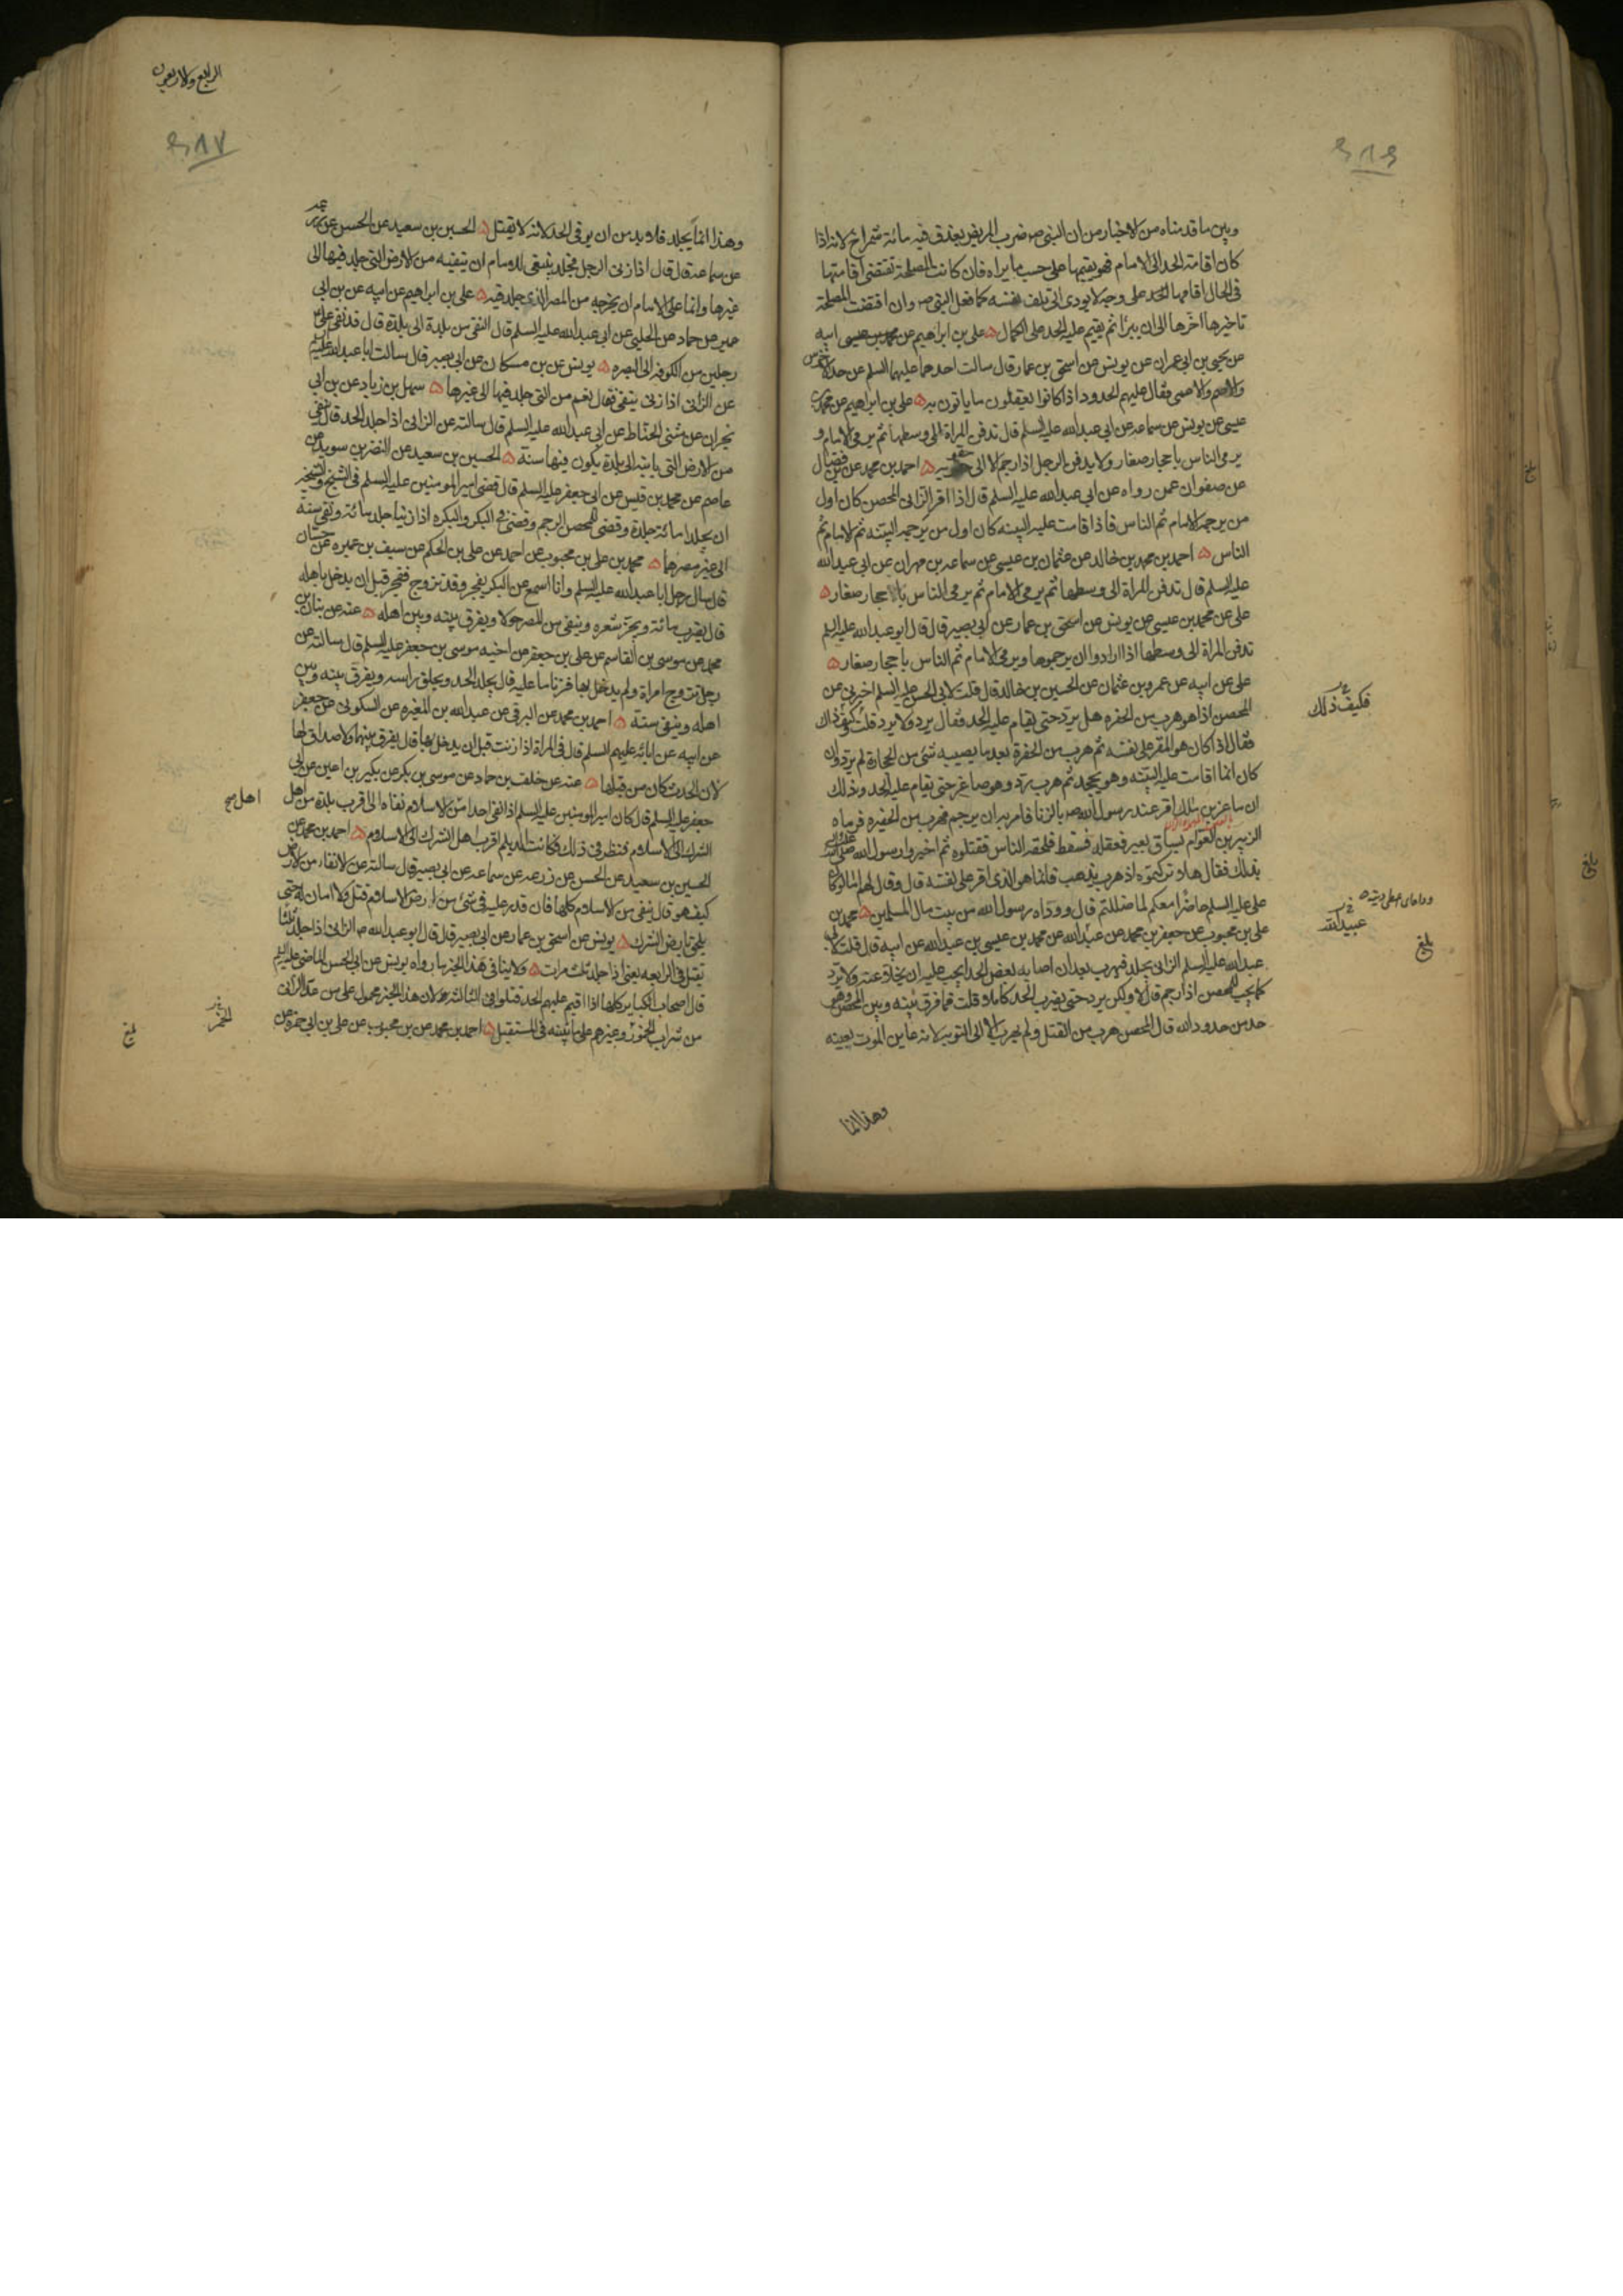 وبين ما قدمناه من الاخبار من ان النبي ص ضرب المريض بعذق فيه مائة شمراخ لانه اذا
كان اقامة الحد الى الامام فهو يقيمها على حسب ما يراه فان كانت المصلحة تقتضى اقامتها
فى الحال اقامها الحد على وجه لا يودى الى تلف نفسه كما فعل النبى ص وان اقتضت المصلحة
تاخيرها اخرها الى ان يبرأ ثم يقيم عليه الحد على الكمال ه على بن ابراهيم عن محمد بن عيسى ابيه
عن يحيى بن ابى عمران عن يونس عن اسحق بن عمار قال سالت احدهما عليهما السلم عن حد الاخرس
والاصم والاعمى فقال عليهم الحدود اذا كانوا يعقلون ما ياتون به ه على بن ابراهيم عن محمد بن
عيسى عن يونس عن سماعه عن ابى عبدالله عليه السلم قال تدفن المراة الى وسطها ثم يرمى الامام و
يرمى الناس باحجار صغار ولا يدفن الرجل اذا رجم الا الى حقويه ه احمد بن محمد عن بن فضال
عن صفوان عمن رواه عن ابى عبدالله عليه السلم قال اذا اقر الزانى المحصن كان اول
من يرجمه الامام ثم الناس فاذا قامت عليه البينه كان اول من يرجمه البينه ثم الامام ثم
الناس ه احمد بن محمد بن خالد عن عثمان بن عيسى عن سماعه بن مهران عن ابى عبدالله
عليه السلم قال تدفن المراة الى وسطها ثم يرمى الامام ثم يرمى الناس بالاحجار صغار ه
على عن محمد بن عيسى عن يونس عن اسحق بن عمار عن ابى بصير قال قال ابو عبدالله عليه السلم
تدفن المراة الى وسطها اذا ارادوا ان يرجموها ويرمى الامام ثم الناس باحجار صغار ه
على عن ابيه عن عمرو بن عثمان عن الحسين بن خالد قال قلت لابى الحسن عليه السلم اخبرنى عن
المحصن اذا هو هرب من الحفره هل يرد حتى يقام عليه الحد فقال يرد ولا يرد قلت كيف ذاك
فكيف ذلك
فقال اذا كان هو المقر على نفسه ثم هرب من الحفرة بعد ما يصيبه شئ من الحجارة لم يرد وان
كان انما اقامت عليه البينه وهو يجحد ثم هرب يرد وهو صاغر حتى يقام عليه الحد وذلك
ان ماعز بن مالك اقر عند رسول الله ص بالزنا فامر به ان يرجم فهرب من الحفيره فرماه
الزبير بن العوام بساق بعير فعقله فسقط فلحقه الناس فقتلوه ثم اخبروا رسول الله صلى الله عليه واله
بذلك فقال هلا تركتموه اذ هرب يذهب فانما هو الذى اقر على نفسه قال وقال لهم اما لو كان
على عليه السلم حاضرا معكم لما ضللتم قال ووداه رسول الله من بيت مال المسلمين ه محمد بن
على بن محبوب عن جعفر بن محمد عن عبدالله عن محمد بن عيسى بن عبدالله عن ابيه قال قلت لابى
عبيدالله
بلغ
عبدالله عليه السلم الزانى يجلد فيهرب بعد ان اصابه بعض الحد ايجب عليه ان يخلا عنه ولا يرد
كما يجب للمحصن اذا رجم قال لا ولكن يرد حتى يضرب الحد كاملا قلت فما فرق بينه وبين المحصن وهو
حد من حدود الله قال المحصن هرب من القتل ولم يهرب الا الى التوبه لانه عاين الموت بعينه
وهذا انما
الرابع والاربعون
وهذا انما يجلد فلا بد من ان يوفى الحد لانه لا يقتل ه الحسين بن سعيد عن الحسن عن زرعه
عن سماعه قال قال اذا زنى الرجل فجلد ينبغى للامام ان ينفيه من الارض التى جلد فيها الى
غيرها وانما على الامام ان يخرجه من المصر الذى جلد فيه ه على بن ابراهيم عن ابيه عن بن ابى
عمير عن حماد عن الحلبى عن ابى عبدالله عليه السلم قال النفى من بلدة الى بلدة قال قد نفى على ع
رجلين من الكوفه الى البصره ه يونس عن بن مسكان عن ابى بصير قال سالت ابا عبدالله عليه السلم
عن الزانى اذا زنى ينفى فقال نعم من التى جلد فيها الى غيرها ه سهل بن زياد عن بن ابى
نجران عن مثنى الحناط عن ابى عبدالله عليه السلم قال سالته عن الزانى اذا جلد الحد قال ينفى
من الارض التى ياتيه الى بلدة يكون فيها سنة ه الحسين بن سعيد عن النضر بن سويد عن
عاصم عن محمد بن قيس عن ابى جعفر عليه السلم قال قضى امير المومنين عليه السلم فى الشيخ والشيخه
ان يجلدا مائة جلدة وقضى للمحصن الرجم وقضى فى البكر والبكره اذا زنيا جلد مائة ونفى سنة
الى غير مصرهما ه محمد بن على بن محبوب عن احمد عن على بن الحكم عن سيف بن عميره عن حنان
قال سال رجل ابا عبدالله عليه السلم وانا اسمع عن البكر يفجر وقد تزوج ففجر قبل ان يدخل باهله
قال يضرب مائة ويجز شعره وينفى من المصر حولا ويفرق بينه وبين اهله ه عنه عن بنان بن
محمد عن موسى بن القاسم عن على بن جعفر عن اخيه موسى بن جعفر عليه السلم قال سالته عن
رجل تزوج امراة ولم يدخل بها فزنا ما عليه قال يجلد الحد ويحلق راسه ويفرق بينه وبين
اهله وينفى سنة ه احمد بن محمد عن البرقى عن عبدالله بن المغيره عن السكونى عن جعفر
عن ابيه عن ابائه عليهم السلم قال فى المراة اذا زنت قبل ان يدخل بها قال يفرق بينهما ولا صداق لها
لان الحدث كان من قبلها ه عنه عن خلف بن حماد عن موسى بن بكر عن بكير بن اعين عن ابى
جعفر عليه السلم قال كان امير المومنين عليه السلم اذا نفى احدا من الاسلام نفاه الى اقرب بلدة من اهل
اهل صح
الشرك الى الاسلام فنظر فى ذلك فكانت الديلم اقرب اهل الشرك الى الاسلام ه احمد بن محمد عن
الحسين بن سعيد عن الحسن عن زرعه عن سماعه عن ابى بصير قال سالته عن الانفاء من الارض
كيف هو قال ينفى من الاسلام كلها فان قدر عليه فى شئ من ارض الاسلام قتل ولا امان له حتى
يلحق بارض الشرك ه يونس عن اسحق بن عمار عن ابى بصير قال قال ابو عبدالله ع الزانى اذا جلد ثلثا
يقتل فى الرابعه يعنى اذا جلد ثلث مرات ه ولا ينافى هذا الخبر ما رواه يونس عن ابى الحسن الماضى عليه السلم
قال اصحاب الكباير كلها اذا اقيم عليهم الحد قتلوا فى الثالثه لان هذا الخبر محمول على من عدا الزانى
الخمر
بلغ
من شراب الخمور وغيرهم على ما نبينه فى المستقبل ه احمد بن محمد عن بن محبوب عن على بن ابى حمزه عن